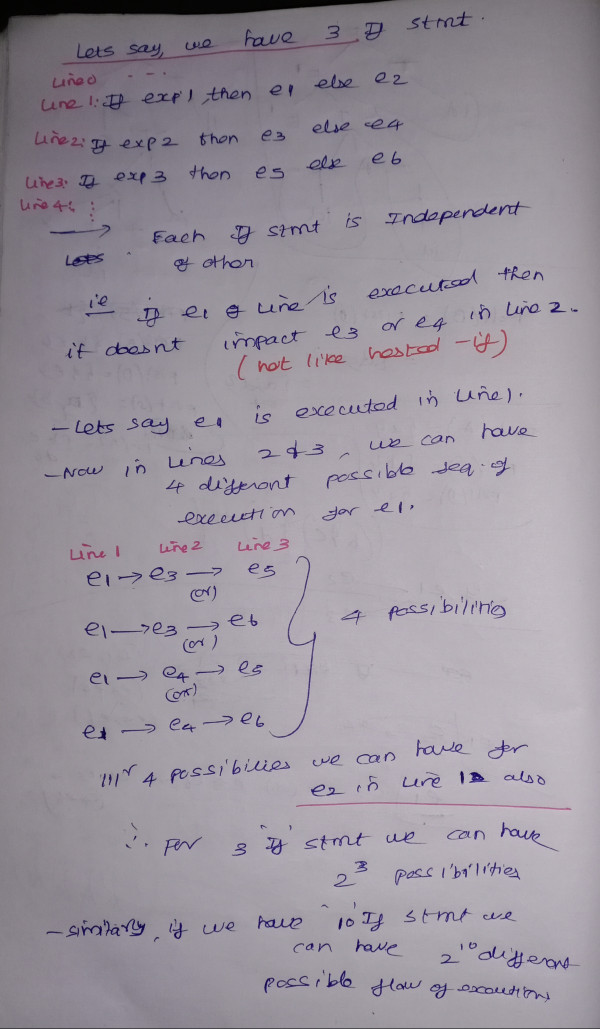 Lets say, we have 3 If stmt.
Line0 ....
Line 1: If exp1, then e1 else e2
Line2: If exp2 then e3 else e4
Line3: If exp3 then e5 else e6
Line4: ⋮
→ Each If stmt is Independent
Lets of other
ie If e1 of Line 1 is executed then
it doesnt impact e3 or e4 in Line 2.
(not like nested -if)
- Lets say e1 is executed in Line 1.
- Now in Lines 2 & 3, we can have
4 different possible seq. of
execution for e1.
Line 1 Line2 Line 3
e1 → e3 → e5
(or)
e1 → e3 → e6
(or)
4 possibilities
e1 → e4 → e5
(or)
e1 → e4 → e6
111r 4 possibilies we can have for
e2 in Line 1 also
∴ For 3 'If' stmt we can have
2^3 possibilities
- similarly, if we have '10' If stmt we
can have 2^10 different
possible flow of executions